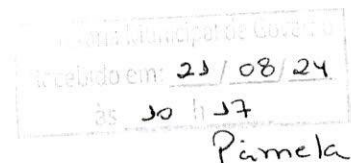 Municipal de Governo
Recebido em: 21/08/24
às 10 h 17
Pâmela